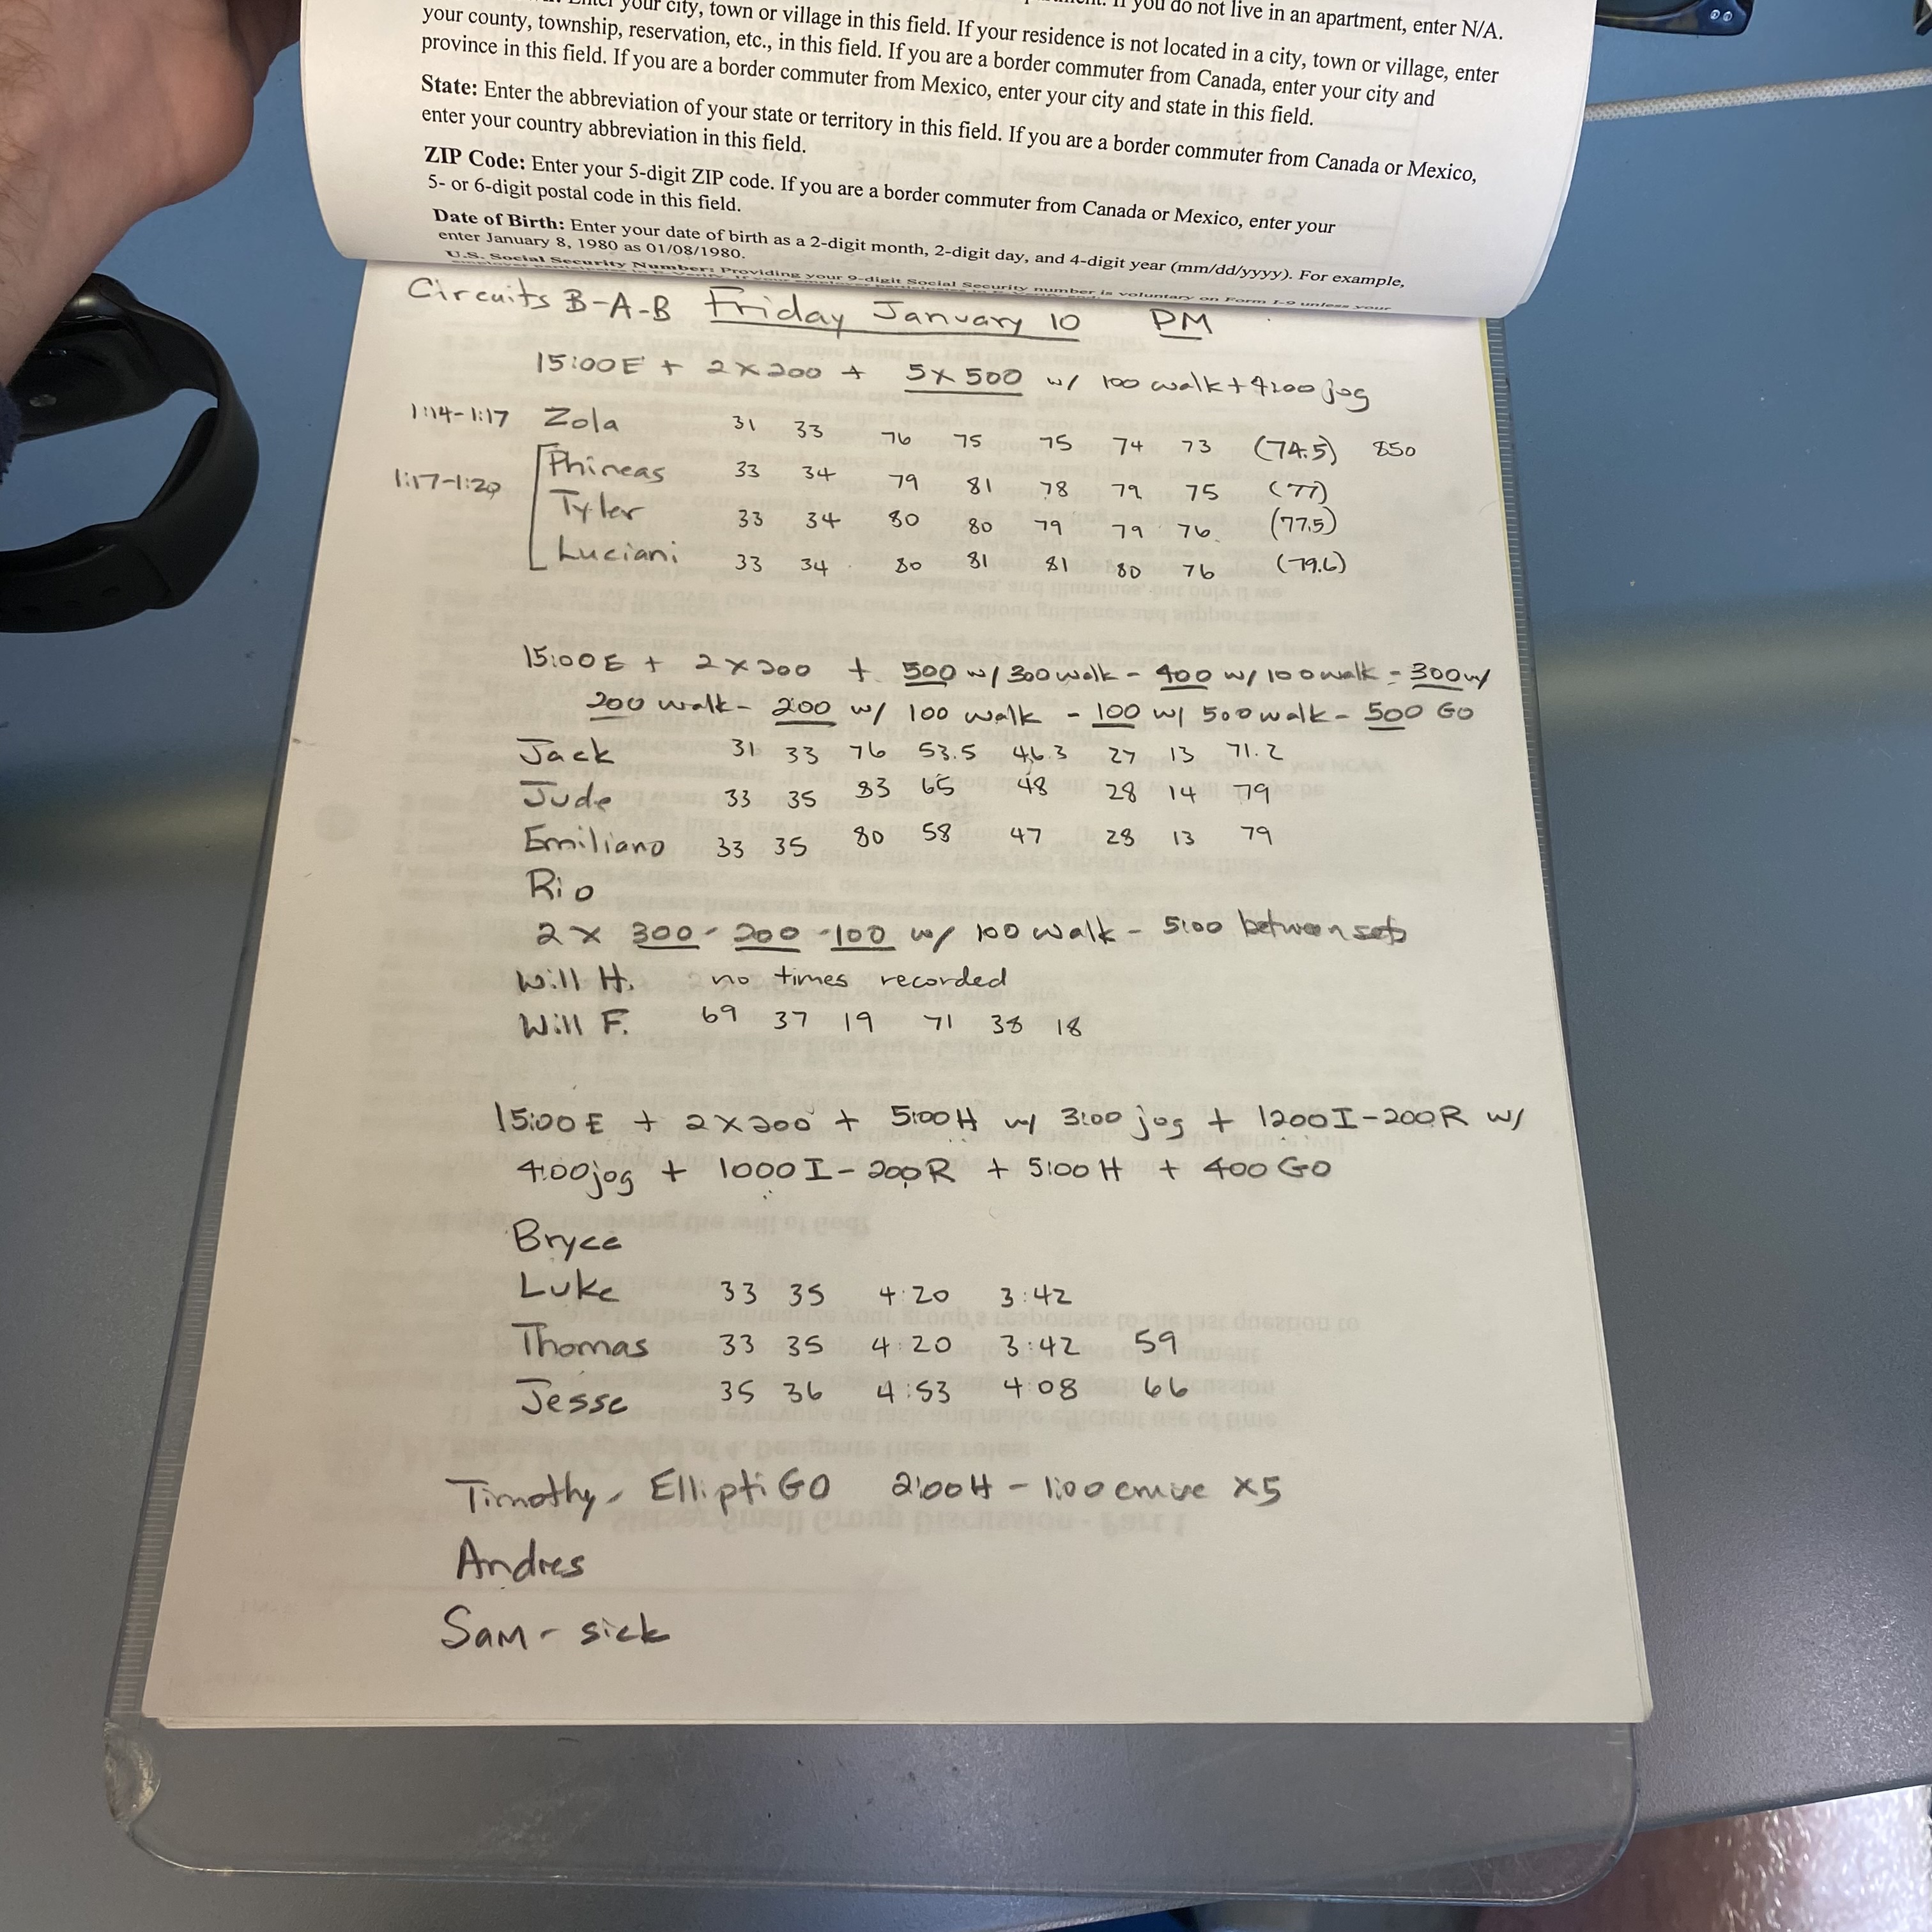 Enter your city, town or village in this field. If your residence is not located in a city, town or village, enter
If you do not live in an apartment, enter N/A.
your county, township, reservation, etc., in this field. If you are a border commuter from Canada, enter your city and
province in this field. If you are a border commuter from Mexico, enter your city and state in this field.
State: Enter the abbreviation of your state or territory in this field. If you are a border commuter from Canada or Mexico,
enter your country abbreviation in this field.
ZIP Code: Enter your 5-digit ZIP code. If you are a border commuter from Canada or Mexico, enter your
5- or 6-digit postal code in this field.
Date of Birth: Enter your date of birth as a 2-digit month, 2-digit day, and 4-digit year (mm/dd/yyyy). For example,
enter January 8, 1980 as 01/08/1980.
U.S. Social Security Number: Providing your 9-digit Social Security number is voluntary on Form I-9 unless your
employer participates in E-Verify.
Circuits B-A-B Friday January 10 PM
15:00 E + 2 x 200 + 5 x 500 w/ 100 walk + 4:00 jog
1:14-1:17 Zola 31 33 76 75 75 74 73 (74.5) 850
Phineas 33 34 79 81 78 79 75 (77)
1:17-1:20 Tyler 33 34 80 80 79 79 76 (77.5)
Luciani 33 34 80 81 81 80 76 (79.6)
15:00 E + 2 x 200 + 500 w/ 300 walk - 400 w/ 100 walk - 300 w/
200 walk - 200 w/ 100 walk - 100 w/ 500 walk - 500 GO
Jack 31 33 76 53.5 46.3 27 13 71.2
Jude 33 35 83 65 48 28 14 79
Emiliano 33 35 80 58 47 28 13 79
Rio
2 x 300 - 200 - 100 w/ 100 walk - 5:00 between sets
Will H. no times recorded
Will F. 69 37 19 71 38 18
15:00 E + 2 x 200 + 5:00 H w/ 3:00 jog + 1200 I - 200 R w/
4:00 jog + 1000 I - 200 R + 5:00 H + 400 GO
Bryce
Luke 33 35 4:20 3:42
Thomas 33 35 4:20 3:42 59
Jesse 35 36 4:53 4:08 66
Timothy - ElliptiGO 2:00 H - 1:00 cruise x5
Andres
Sam - sick